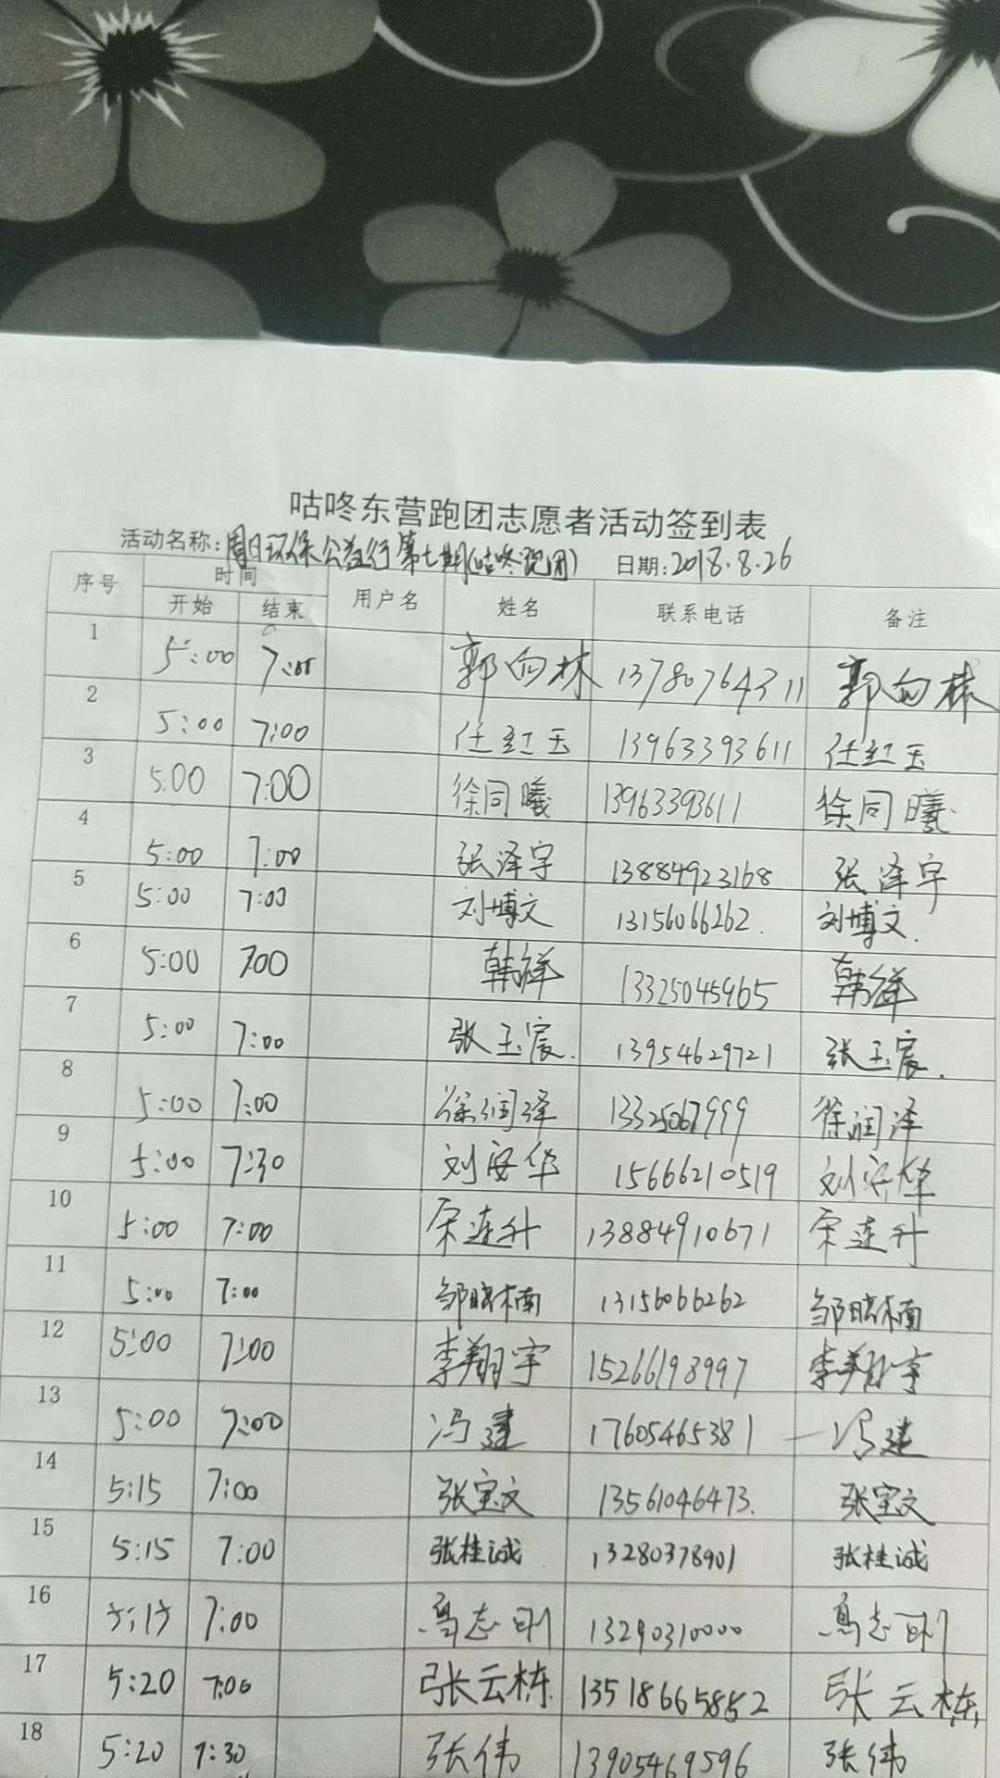 咕咚东营跑团志愿者活动签到表
活动名称:周日环保公益行第七期(咕咚跑团) 日期:2018.8.26
序号 时间 用户名 姓名 联系电话 备注
开始 结束
1 5:00 7:00 郭向林 13780764311 郭向林
2 5:00 7:00 任红玉 13963393611 任红玉
3 5:00 7:00 徐同曦 13963393611 徐同曦
4 5:00 7:00 张泽宇 13884923168 张泽宇
5 5:00 7:00 刘博文 13156066262. 刘博文.
6 5:00 700 韩祥 13325045965 韩祥
7 5:00 7:00 张玉宸. 13954629721 张玉宸.
8 5:00 7:00 徐润泽 13325067999 徐润泽
9 5:00 7:30 刘安华 15666210519 刘安华
10 5:00 7:00 宋连升 13884910671 宋连升
11 5:00 7:00 邹晓楠 13156066262 邹晓楠
12 5:00 7:00 李翔宇 15266198997 李翔宇
13 5:00 7:00 冯建 17605465381 冯建
14 5:15 7:00 张宝文 13561046473. 张宝文
15 5:15 7:00 张桂诚 13280378901 张桂诚
16 5:15 7:00 志刚 13290310000 志刚
17 5:20 7:00 张云栋 13518665852 张云栋
18 5:20 7:30 张伟 13905469596 张伟